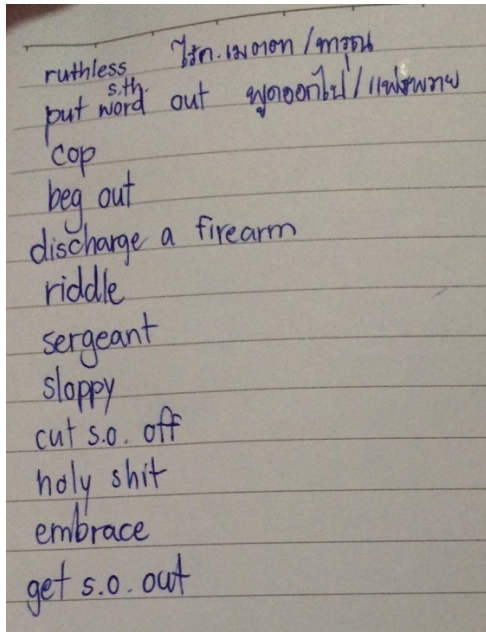 ruthless ไร้ค.เมตตา / ทารุณ
s.th.
put word out พูดออกไป / แพร่พราย
cop
beg out
discharge a firearm
riddle
sergeant
sloppy
cut s.o. off
holy shit
embrace
get s.o. out